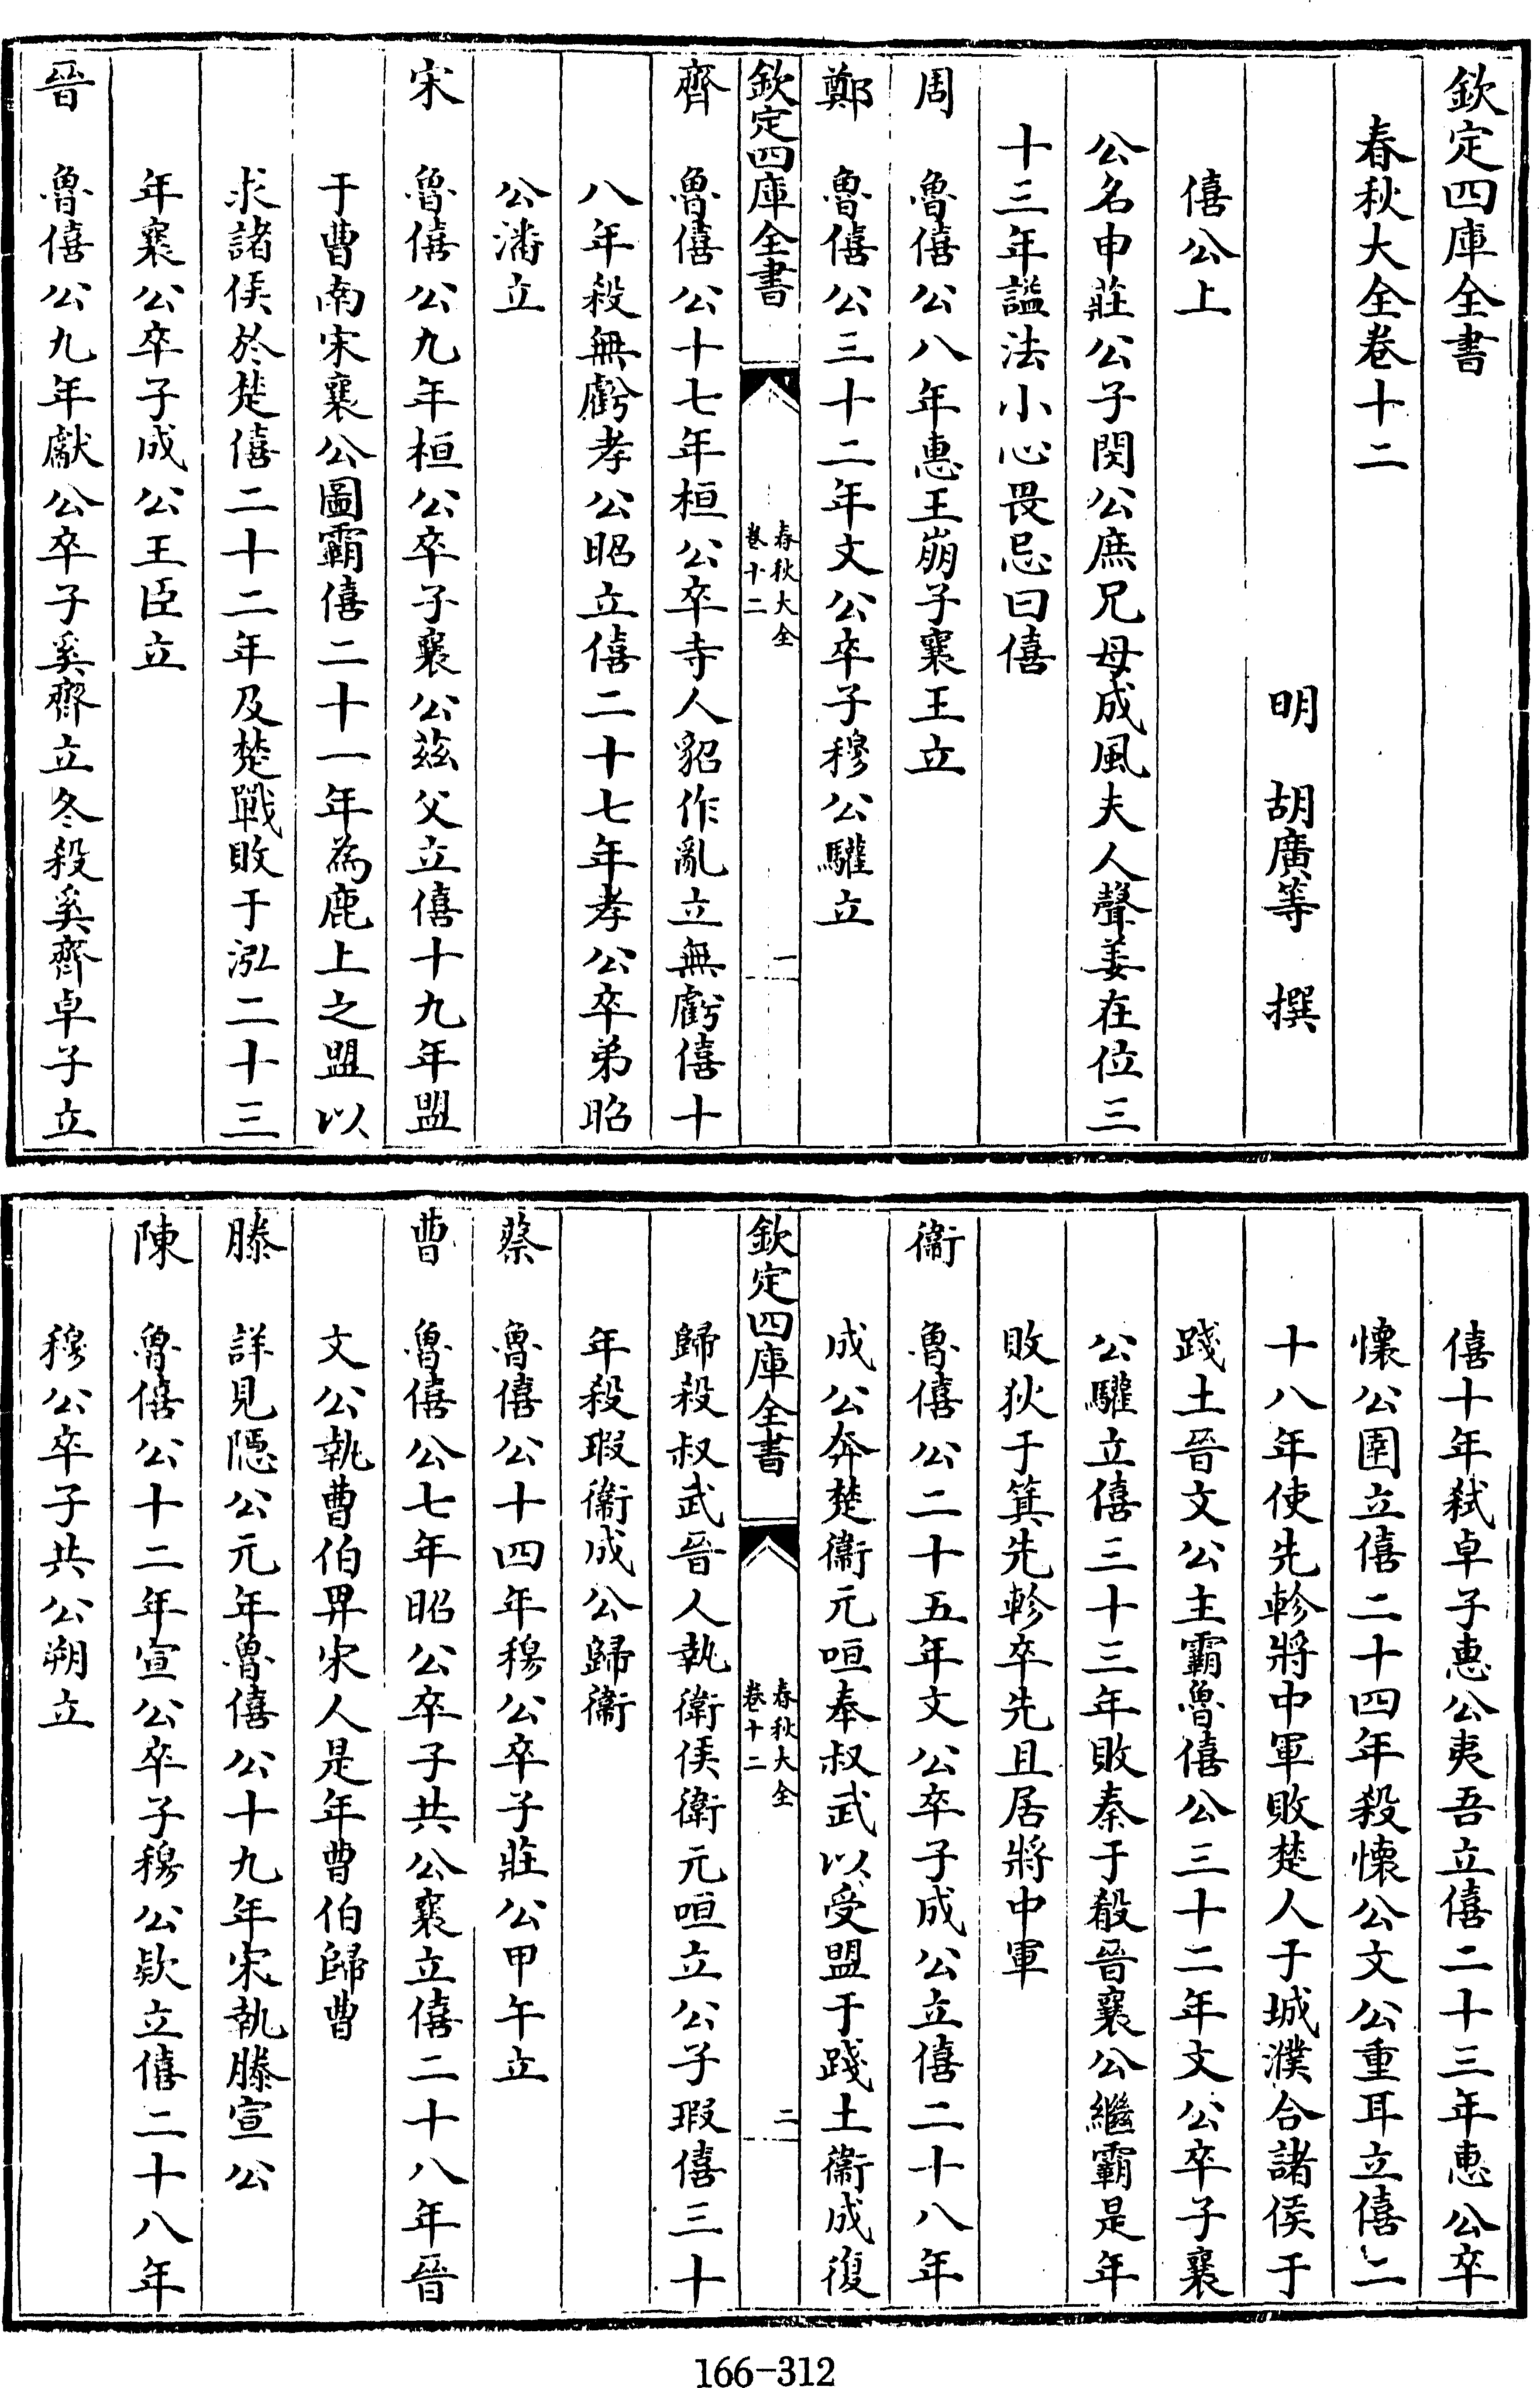 欽定四庫全書
春秋大全卷十二
明　胡廣等　撰
僖公上
公名申莊公子閔公庶兄母成風夫人聲姜在位三
十三年諡法小心畏忌曰僖
周　魯僖公八年惠王崩子襄王立
鄭　魯僖公三十二年文公卒子穆公驩立
欽定四庫全書
春秋大全
卷十二
一
齊　魯僖公十七年桓公卒寺人貂作亂立無虧僖十
八年殺無虧孝公昭立僖二十七年孝公卒弟昭
公潘立
宋　魯僖公九年桓公卒子襄公茲父立僖十九年盟
于曹南宋襄公圖霸僖二十一年為鹿上之盟以
求諸侯於楚僖二十二年及楚戰敗于泓二十三
年襄公卒子成公王臣立
晉　魯僖公九年獻公卒子奚齊立冬殺奚齊卓子立
僖十年弒卓子惠公夷吾立僖二十三年惠公卒
懷公圉立僖二十四年殺懷公文公重耳立僖二
十八年使先軫將中軍敗楚人于城濮合諸侯于
踐土晉文公主霸魯僖公三十二年文公卒子襄
公驩立僖三十三年敗秦于殽晉襄公繼霸是年
敗狄于箕先軫卒先且居將中軍
衞　魯僖公二十五年文公卒子成公立僖二十八年
成公奔楚衞元咺奉叔武以受盟于踐土衞成復
欽定四庫全書
春秋大全
卷十二
二
歸殺叔武晉人執衛侯衛元咺立公子瑕僖三十
年殺瑕衞成公歸衞
蔡　魯僖公十四年穆公卒子莊公甲午立
曹　魯僖公七年昭公卒子共公襄立僖二十八年晉
文公執曹伯畀宋人是年曹伯歸曹
滕　詳見隱公元年魯僖公十九年宋執滕宣公
陳　魯僖公十二年宣公卒子穆公款立僖二十八年
穆公卒子共公朔立
166-312